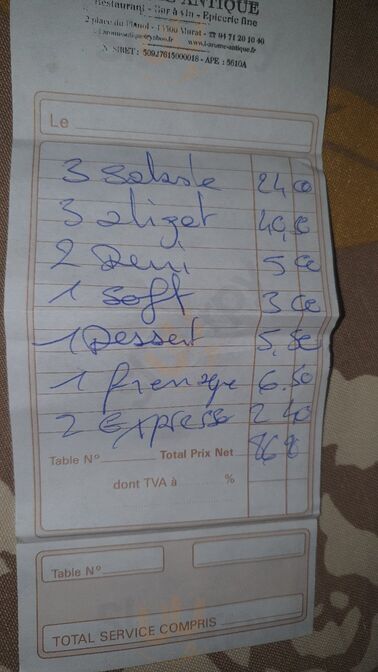 ANTIQUE
Restaurant - Bar à vin - Epicerie fine
2 place du Planol - 15300 Murat - ☎ 04 71 20 10 40
www.l-arome-antique.fr
N° SIRET : 50927615000018 - APE : 5610A
Le
3 Salade 24,00
3 Aligot 40,50
2 Demi 5 00
1 Soft 3 00
1 Dessert 5,50
1 fromage 6.50
2 Express 2 40
Table N° Total Prix Net
dont TVA à %
Table N°
TOTAL SERVICE COMPRIS